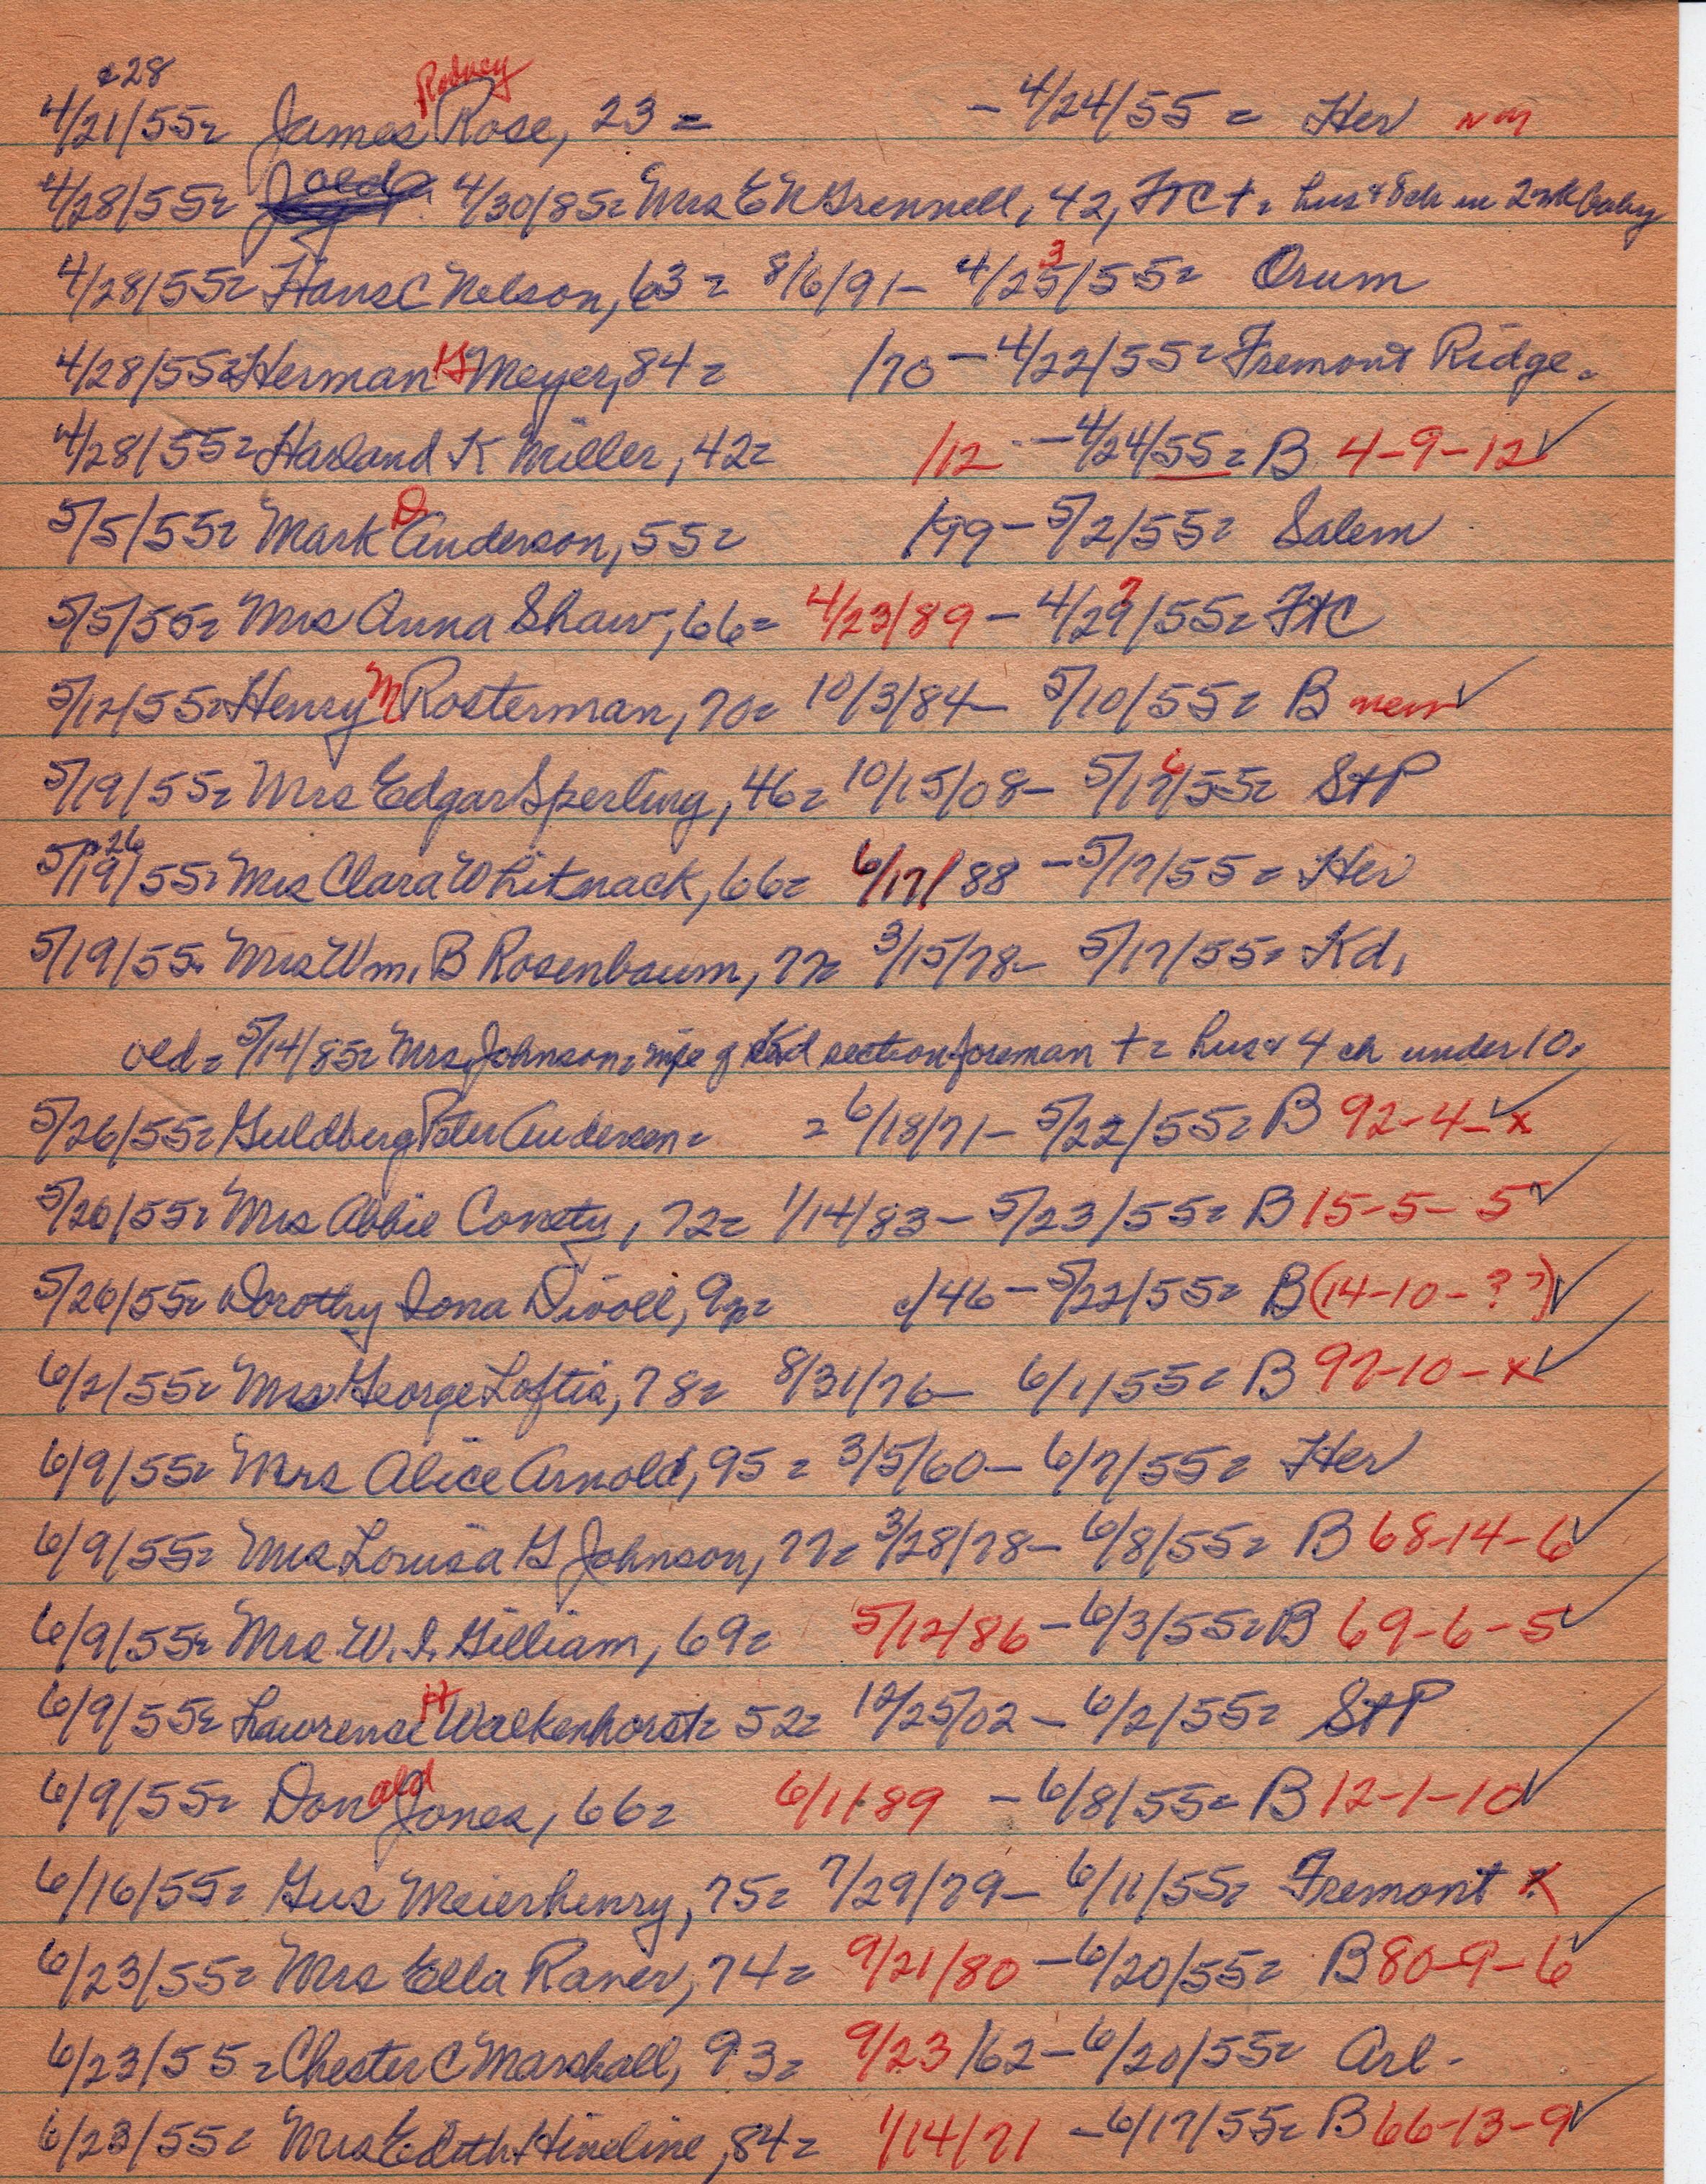 & 28 Rodney
4/21/55= James Rose, 23 = - 4/24/55 = Her nm
4/28/55= old 4/30/85= Mrs E N Grennell, 42, FtC + = hus & 8 ch in 2 wk baby
4/28/55= Hans C Nelson, 63 = 8/6/91- 4/23/55= Orum
4/28/55= Herman H Meyer, 84 = /70 - 4/22/55= Fremont Ridge.
4/28/55= Harland K Miller, 42= /12 - 4/24/55= B 4-9-12 ✓
5/5/55= Mark D Anderson, 55= /99 - 5/2/55= Salem
5/5/55= Mrs Anna Shaw, 66= 4/23/89 - 4/29/55= FtC
5/12/55= Henry M Rosterman, 70= 10/3/84- 5/10/55= B mem ✓
5/19/55= Mrs Edgar Sperling, 46= 10/15/08- 5/16/55= StP
5/19 & 26/55= Mrs Clara Whitnack, 66= 6/17/88 - 5/17/55= Her
5/19/55= Mrs Wm. B Rosenbaum, 77= 3/15/78- 5/17/55= Kd.
old = 5/14/85= Mrs Johnson= wife of Kd section foreman + = hus & 4 ch under 10.
5/26/55= Guldberg Peter Andersen= = 6/18/71- 5/22/55= B 92-4-x ✓
5/26/55= Mrs Abbie Conety, 72= 1/14/83- 5/23/55= B 15-5-5 ✓
5/26/55= Dorothy Iona Divoll, 9= c/46 - 5/22/55= B (14-10-??) ✓
6/2/55= Mrs George Loftis, 78= 8/31/76- 6/1/55= B 97-10-x ✓
6/9/55= Mrs Alice Arnold, 95 = 3/5/60- 6/7/55= Her
6/9/55= Mrs Louisa G Johnson, 77= 3/28/78- 6/8/55= B 68-14-6 ✓
6/9/55= Mrs. W. I. Gilliam, 69= 5/12/86 - 6/3/55= B 69-6-5 ✓
6/9/55= Lawrense H Walkenhorst= 52= 12/25/02 - 6/2/55= StP
6/9/55= Donald Jones, 66= 6/1/89 - 6/8/55= B 12-1-10 ✓
6/16/55= Gus Meierhenry, 75= 7/29/79- 6/11/55= Fremont x
6/23/55= Mrs Ella Raner, 74= 9/21/80 - 6/20/55= B 80-9-6 ✓
6/23/55= Chester C Marshall, 93= 9/23/62- 6/20/55= Arl-
6/23/55= Mrs Edith Hineline, 84= 1/14/71 - 6/17/55= B 66-13-9 ✓